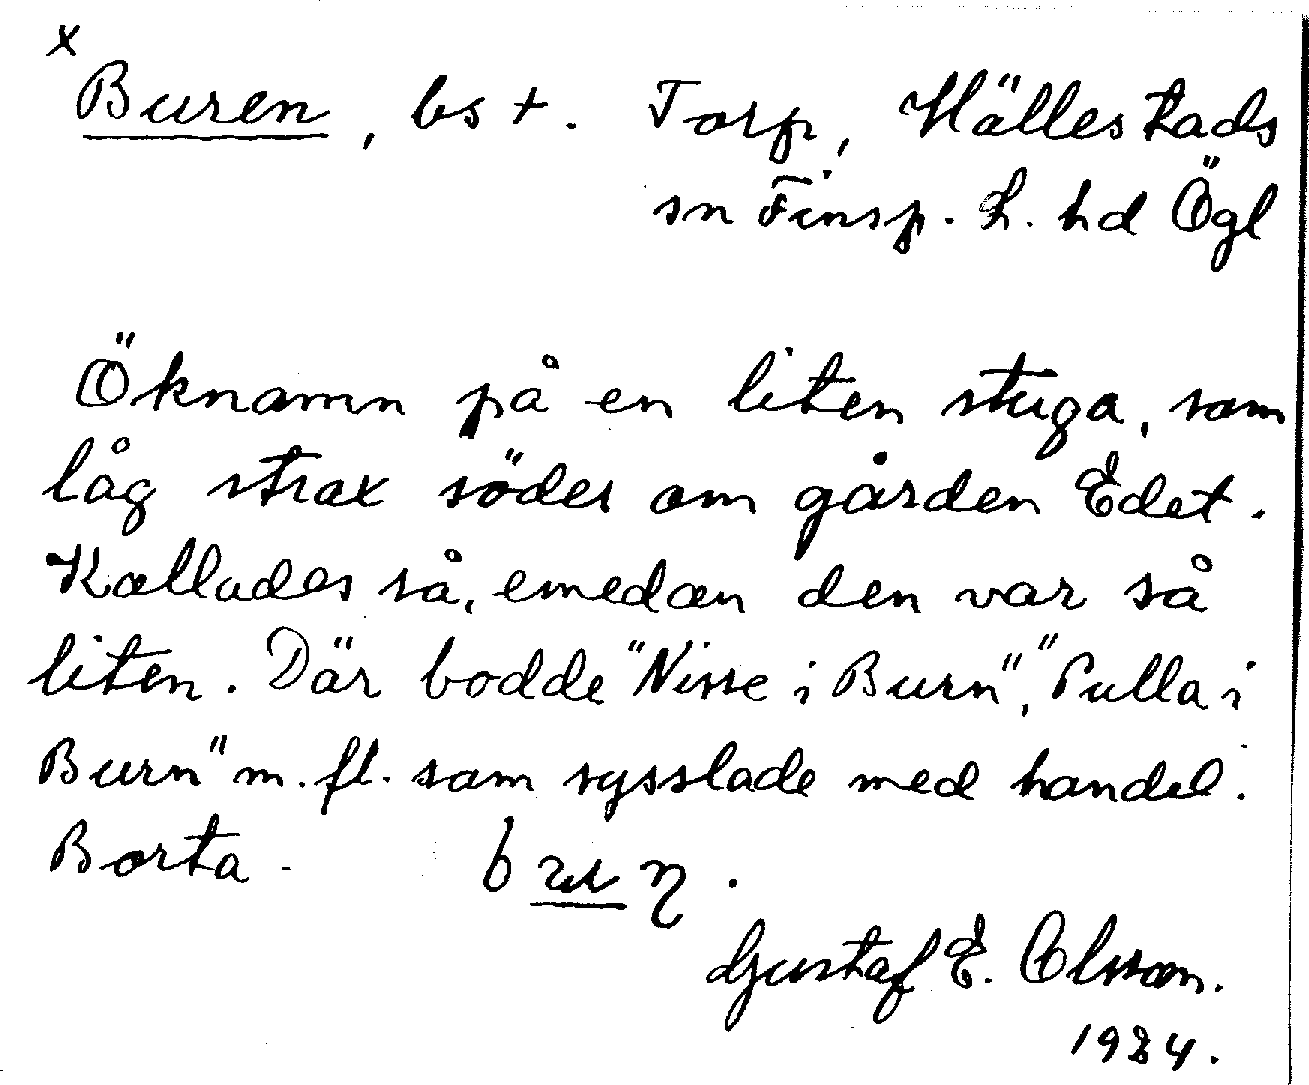 x
Buren, bs +. Torp, Hällestads
sn Finsp. L. hd Ögl
Öknamn på en liten stuga, som
låg strax söder om gården Edet.
Kallades så, emedan den var så
liten. Där bodde "Nisse i Burn", "Pulla i
Burn" m. fl. som sysslade med handel.
Borta.
Gustaf E. Olsson.